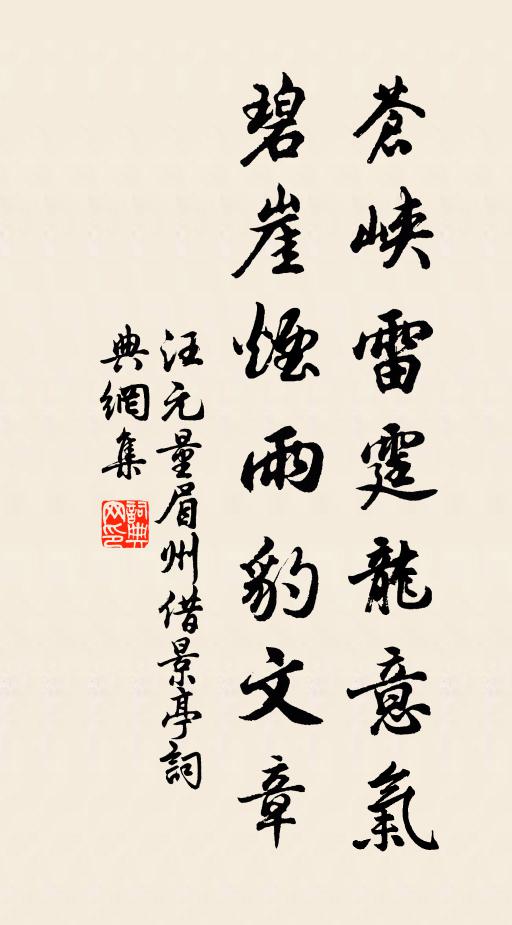 蒼峽雷霆龍意氣
碧崖煙雨豹文章
汪元量眉州借景亭詞
典網集
詞典
网印